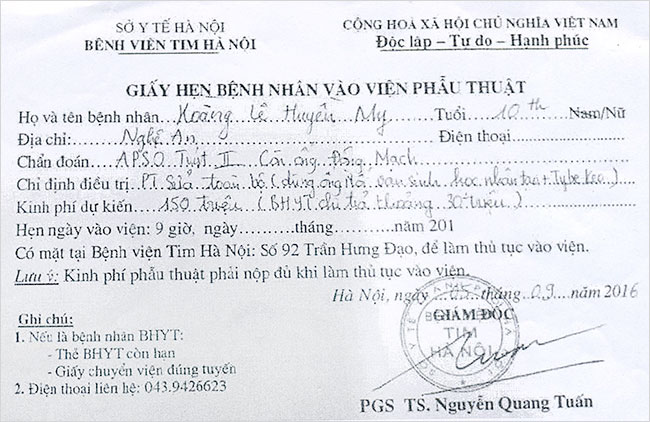 SỞ Y TẾ HÀ NỘI
BỆNH VIỆN TIM HÀ NỘI
CỘNG HOÀ XÃ HỘI CHỦ NGHĨA VIỆT NAM
Độc lập – Tự do – Hạnh phúc
GIẤY HẸN BỆNH NHÂN VÀO VIỆN PHẪU THUẬT
Họ và tên bệnh nhân Hoàng Lê Huyền My Tuổi 10th Nam/Nữ
Địa chỉ: Nghệ An Điện thoại
Chẩn đoán APSO Typ II Còn ống Động Mạch
Chỉ định điều trị PT Sửa toàn bộ (dùng ống van sinh học nhân tạo + Keo)
Kinh phí dự kiến 150 triệu (BHYT chi trả khoảng 30 triệu)
Hẹn ngày vào viện: 9 giờ, ngày.........tháng..........201
Có mặt tại Bệnh viện Tim Hà Nội: Số 92 Trần Hưng Đạo, để làm thủ tục vào viện.
Lưu ý: Kinh phí phẫu thuật phải nộp đủ khi làm thủ tục vào viện.
Hà Nội, ngày 05 tháng 09 năm 2016
GIÁM ĐỐC
BỆNH VIỆN
TIM
HÀ NỘI
Ghi chú:
1. Nếu là bệnh nhân BHYT:
- Thẻ BHYT còn hạn
- Giấy chuyển viện đúng tuyến
2. Điện thoại liên hệ: 043.9426623
PGS TS. Nguyễn Quang Tuấn